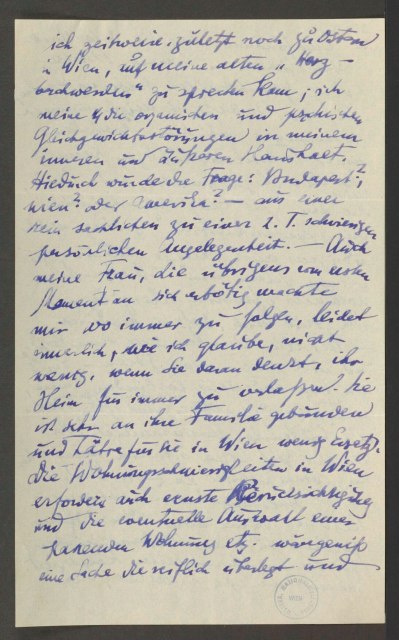 ich zeitweise, zuletzt noch zu Ostern
in Wien, auf meine alten „Herz-
beschwerden“ zu sprechen kam; ich
meine die organischen und psychischen
Gleichgewichtsstörungen in meinem
inneren und äußeren Haushalt.
Hiedurch wurde die Frage: Budapest?,
Wien? oder Amerika? — aus einer
rein sachlichen zu einer z. T. schwierigen
persönlichen Angelegenheit. — Auch
meine Frau, die übrigens vom ersten
Moment an sich erbötig machte
mir wo immer zu folgen, leidet
innerlich, wie ich glaube, nicht
wenig, wenn Sie daran denkt, ihr
Heim für immer zu verlassen. Sie
ist sehr an ihre Familie gebunden
und hätte für Sie in Wien wenig Ersatz.
Die Wohnungsschwierigkeiten in Wien
erfordern auch ernste Berücksichtigung
und die eventuelle Auswahl einer
passenden Wohnung etz. wäre gewiß
eine Sache die reiflich überlegt und